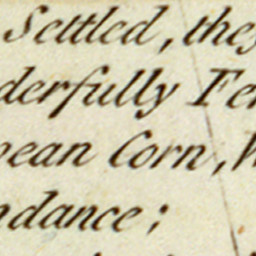 Settled, they
derfully Fe
pean Corn, W
ndance;